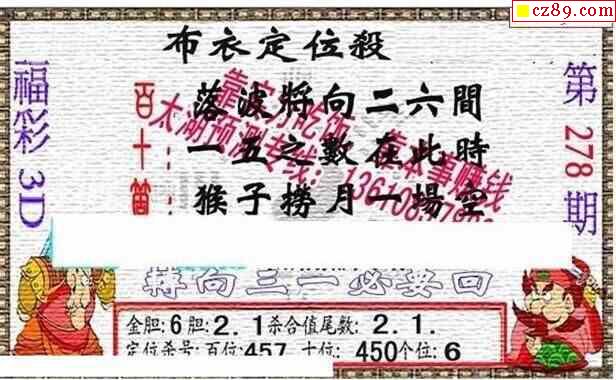 cz89.com
布衣定位殺
福彩3D
第278期
落波將向二六間
一五之數在此時
猴子撈月一場空
靠实力吃饭 靠本事赚钱
太湖预测专线:
百十
向三一必要回
金胆:6胆:2.1杀合值尾数:2.1.
定位杀号:百位:457 十位:450个位:6